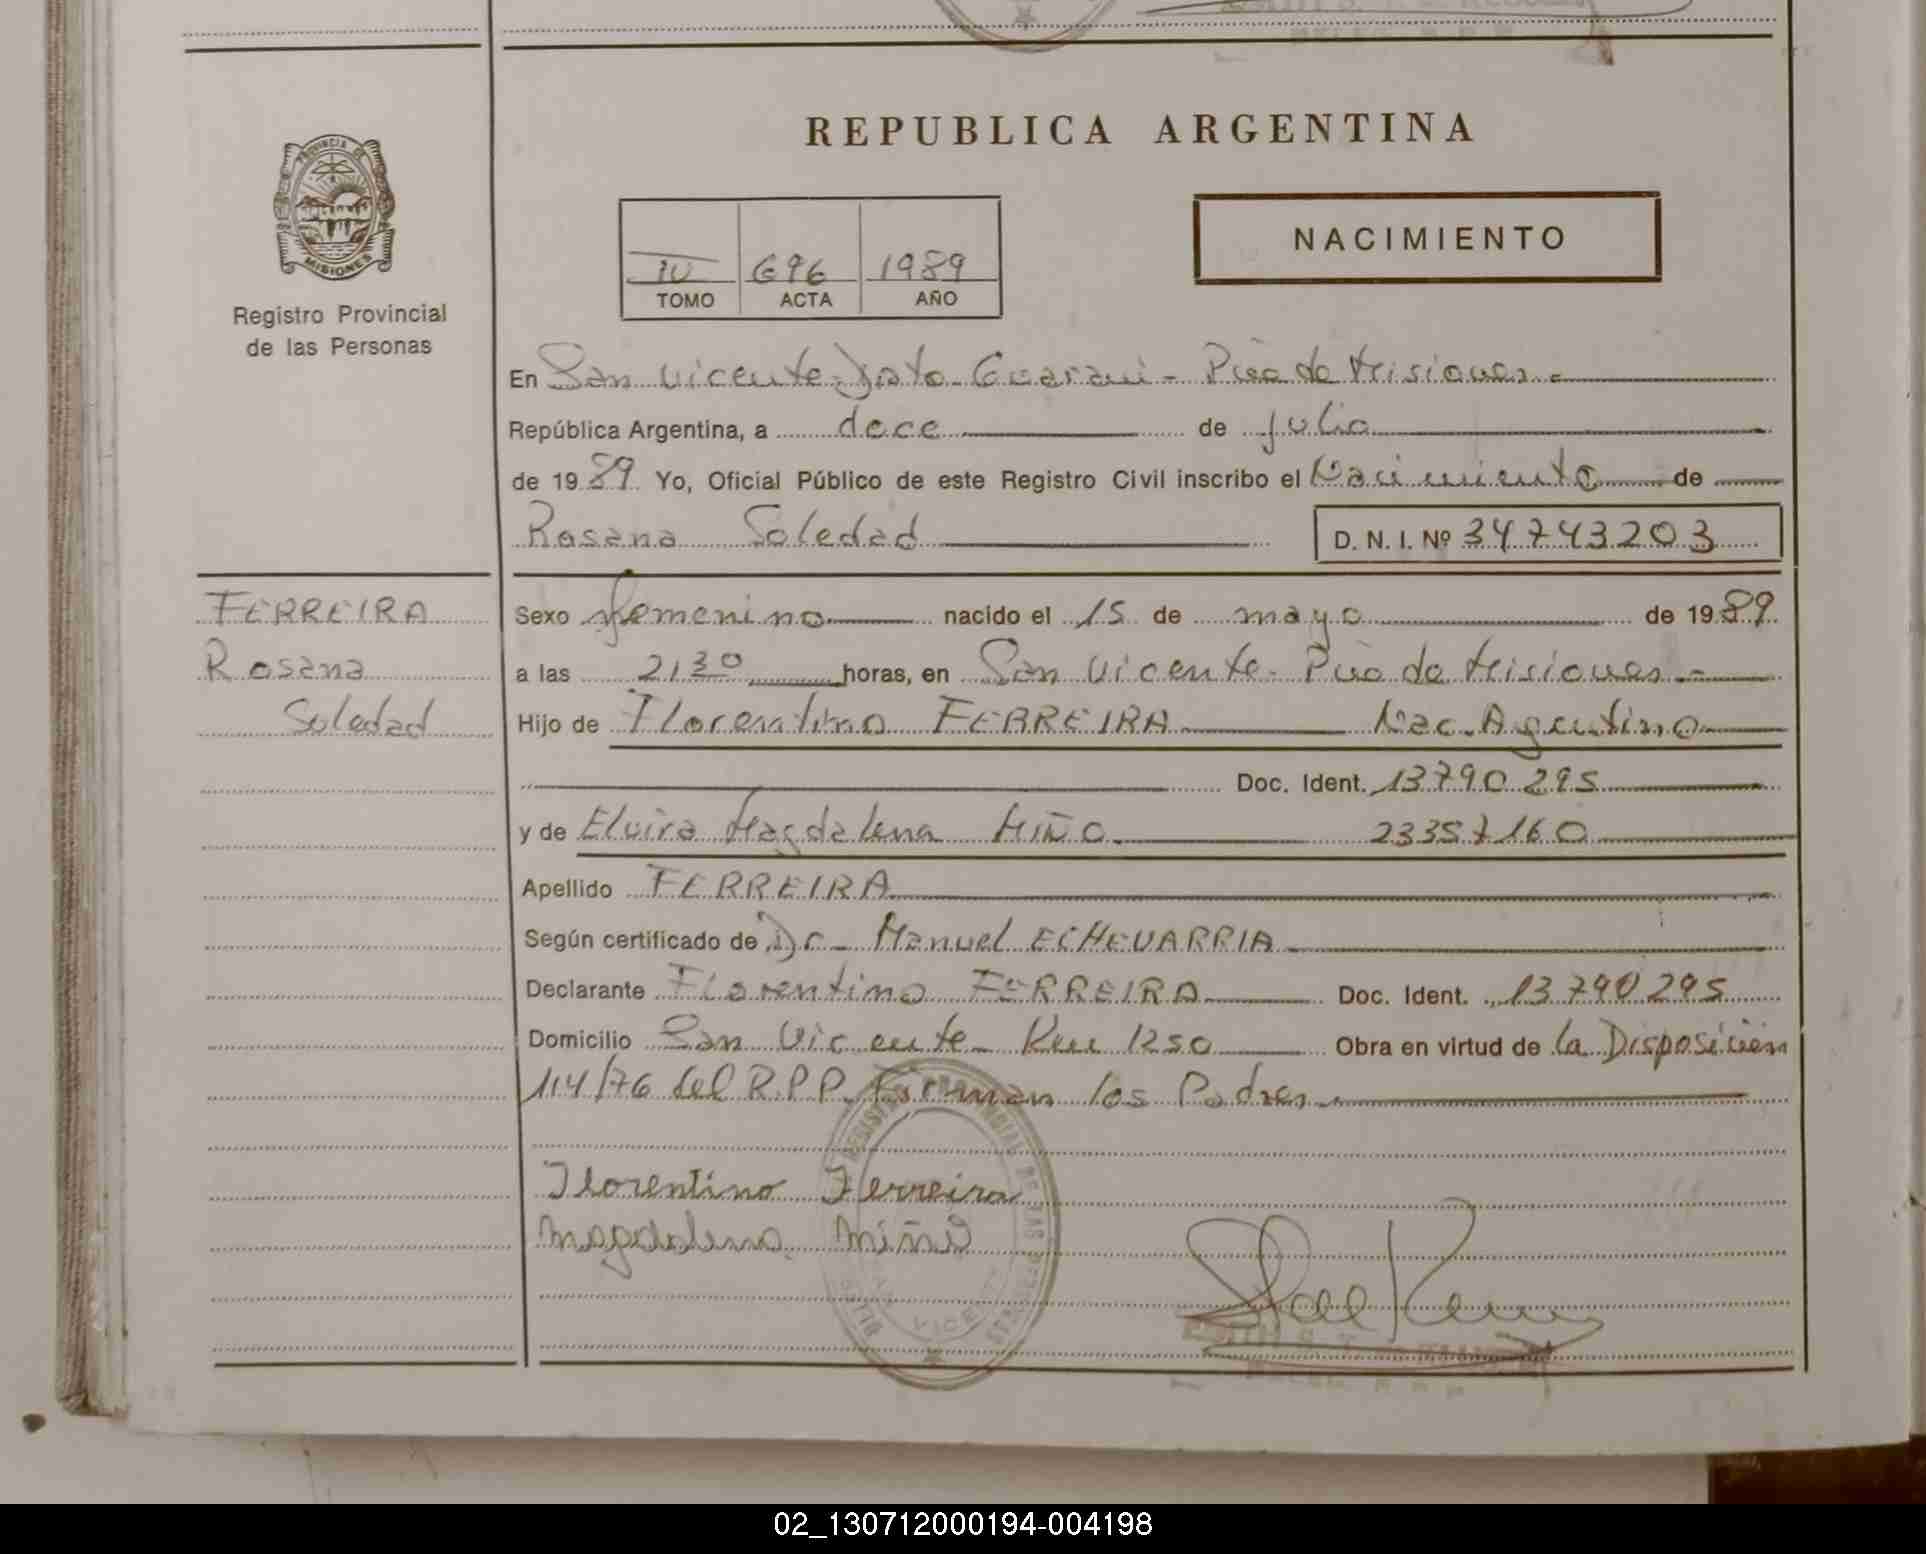 REPUBLICA ARGENTINA
PROVINCIA DE
MISIONES
Registro Provincial
de las Personas
IV 696 1989
TOMO ACTA AÑO
NACIMIENTO
En San Vicente - Dpto Guarani - Pcia de Misiones -
República Argentina, a doce de Julio
de 1989 Yo, Oficial Público de este Registro Civil inscribo el Nacimiento de
Rosana Soledad D. N. I. Nº 34743203
FERREIRA
Rosana
Soledad
Sexo femenino nacido el 15 de mayo de 1989
a las 2130 horas, en San Vicente - Pcia de Misiones -
Hijo de Florentino FERREIRA Nac. Argentino
Doc. Ident. 13790295
y de Elvira Magdalena MIÑO 23357160
Apellido FERREIRA
Según certificado de Dr - Manuel ECHEVARRIA
Declarante Florentino FERREIRA Doc. Ident. 13790295
Domicilio San Vicente - Km 1250 Obra en virtud de la Disposición
114/76 del R.P.P. Firman los Padres
Florentino Ferreira
Magdalena Miño
REGISTRO PROVINCIAL DE LAS PERSONAS
SAN VICENTE
02_130712000194-004198